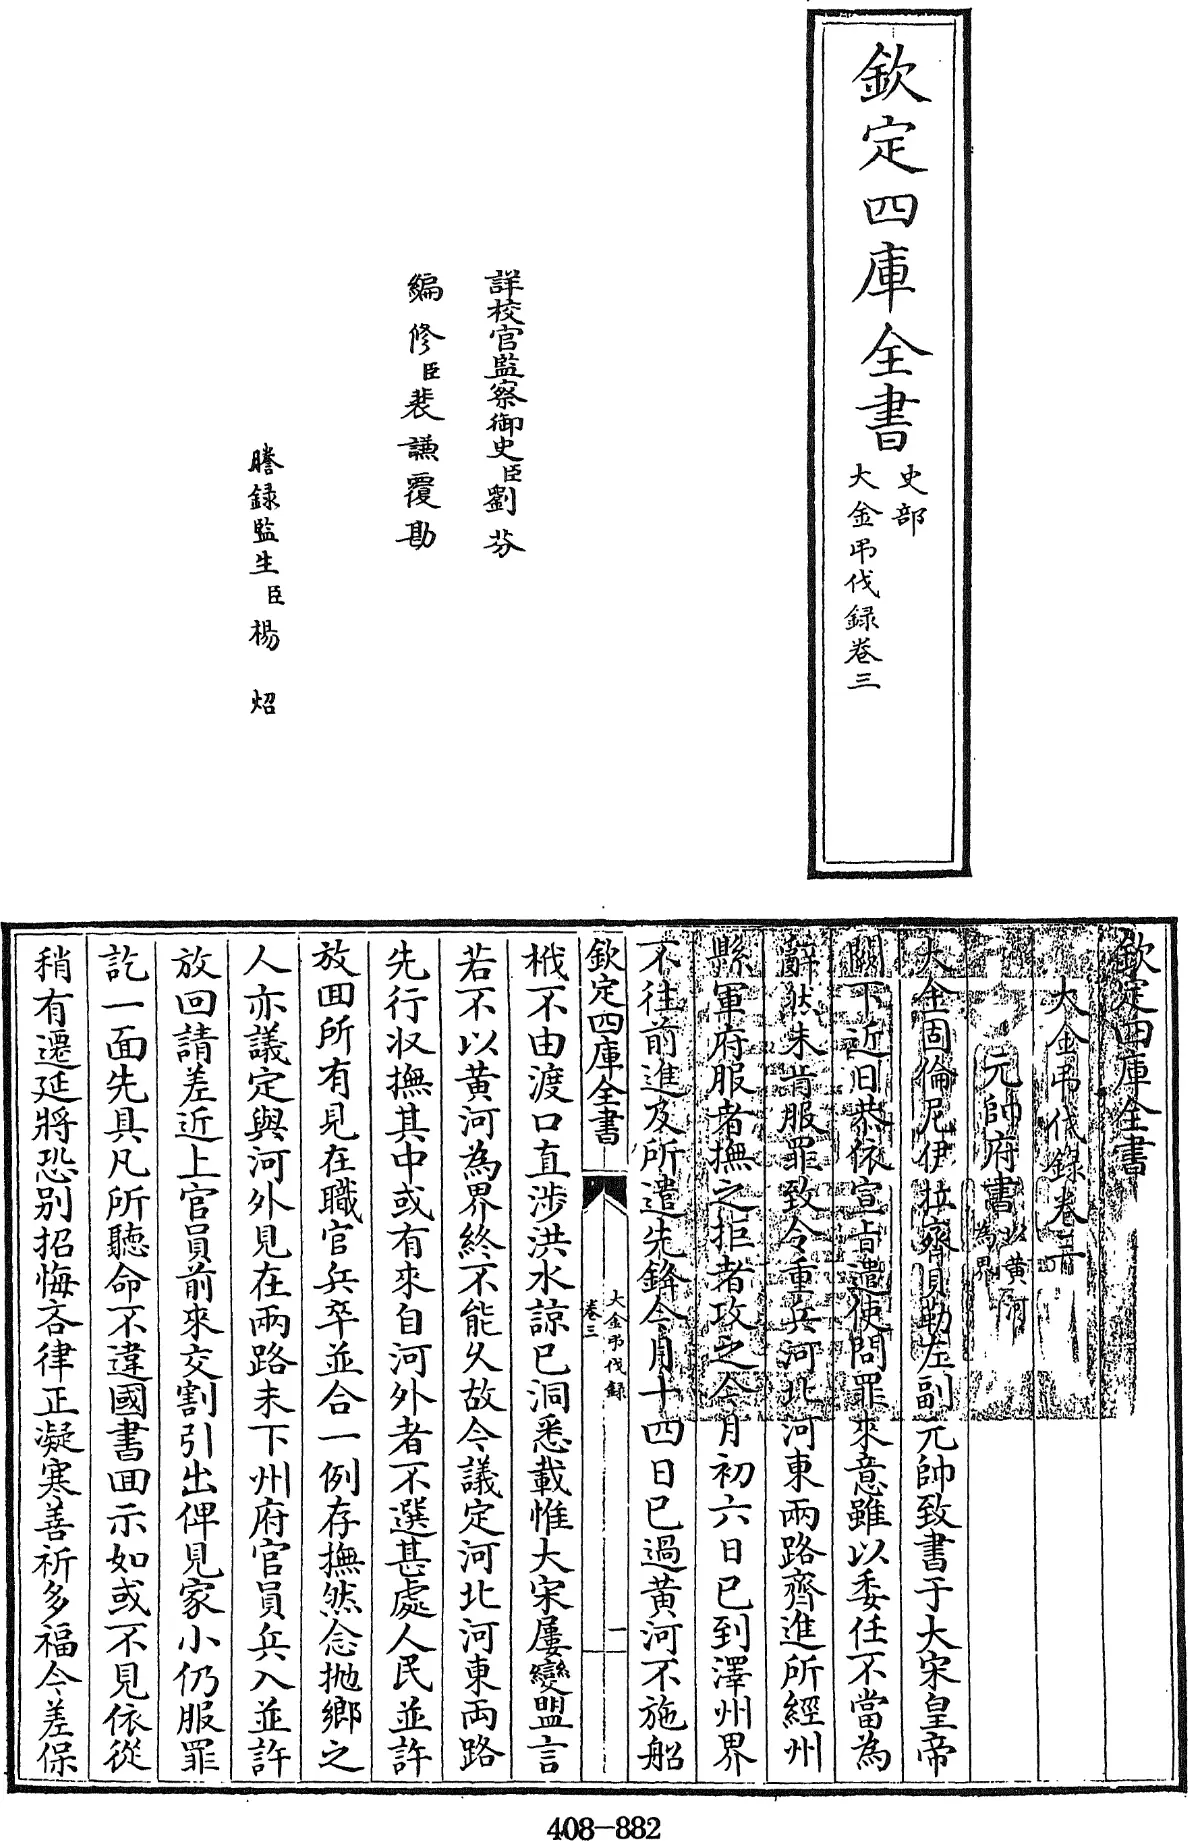 欽定四庫全書
史部
大金弔伐録卷三
詳校官監察御史臣劉芬
編修臣裴謙覆勘
謄録監生臣楊炤
欽定四庫全書
大金弔伐録卷三
元帥府書以黄河為界
大金固倫尼伊拉齊貝勒左副元帥致書于大宋皇帝
闕下近日恭依宣旨遣使問罪來意雖以委任不當為
辭然未肯服罪致令重兵河北河東兩路齊進所經州
縣軍府服者撫之拒者攻之今月初六日已到澤州界
不往前進及所遣先鋒今月十四日已過黄河不施船
欽定四庫全書
大金弔伐録
卷三
一
栰不由渡口直涉洪水諒已洞悉載惟大宋屢變盟言
若不以黄河為界終不能久故令議定河北河東兩路
先行收撫其中或有來自河外者不選甚處人民並許
放回所有見在職官兵卒並合一例存撫然念拋鄉之
人亦議定與河外見在兩路未下州府官員兵入並許
放回請差近上官員前來交割引出俾見家小仍服罪
訖一面先具凡所聽命不違國書回示如或不見依從
稍有遷延將恐别招悔吝律正凝寒善祈多福今差保
408-882